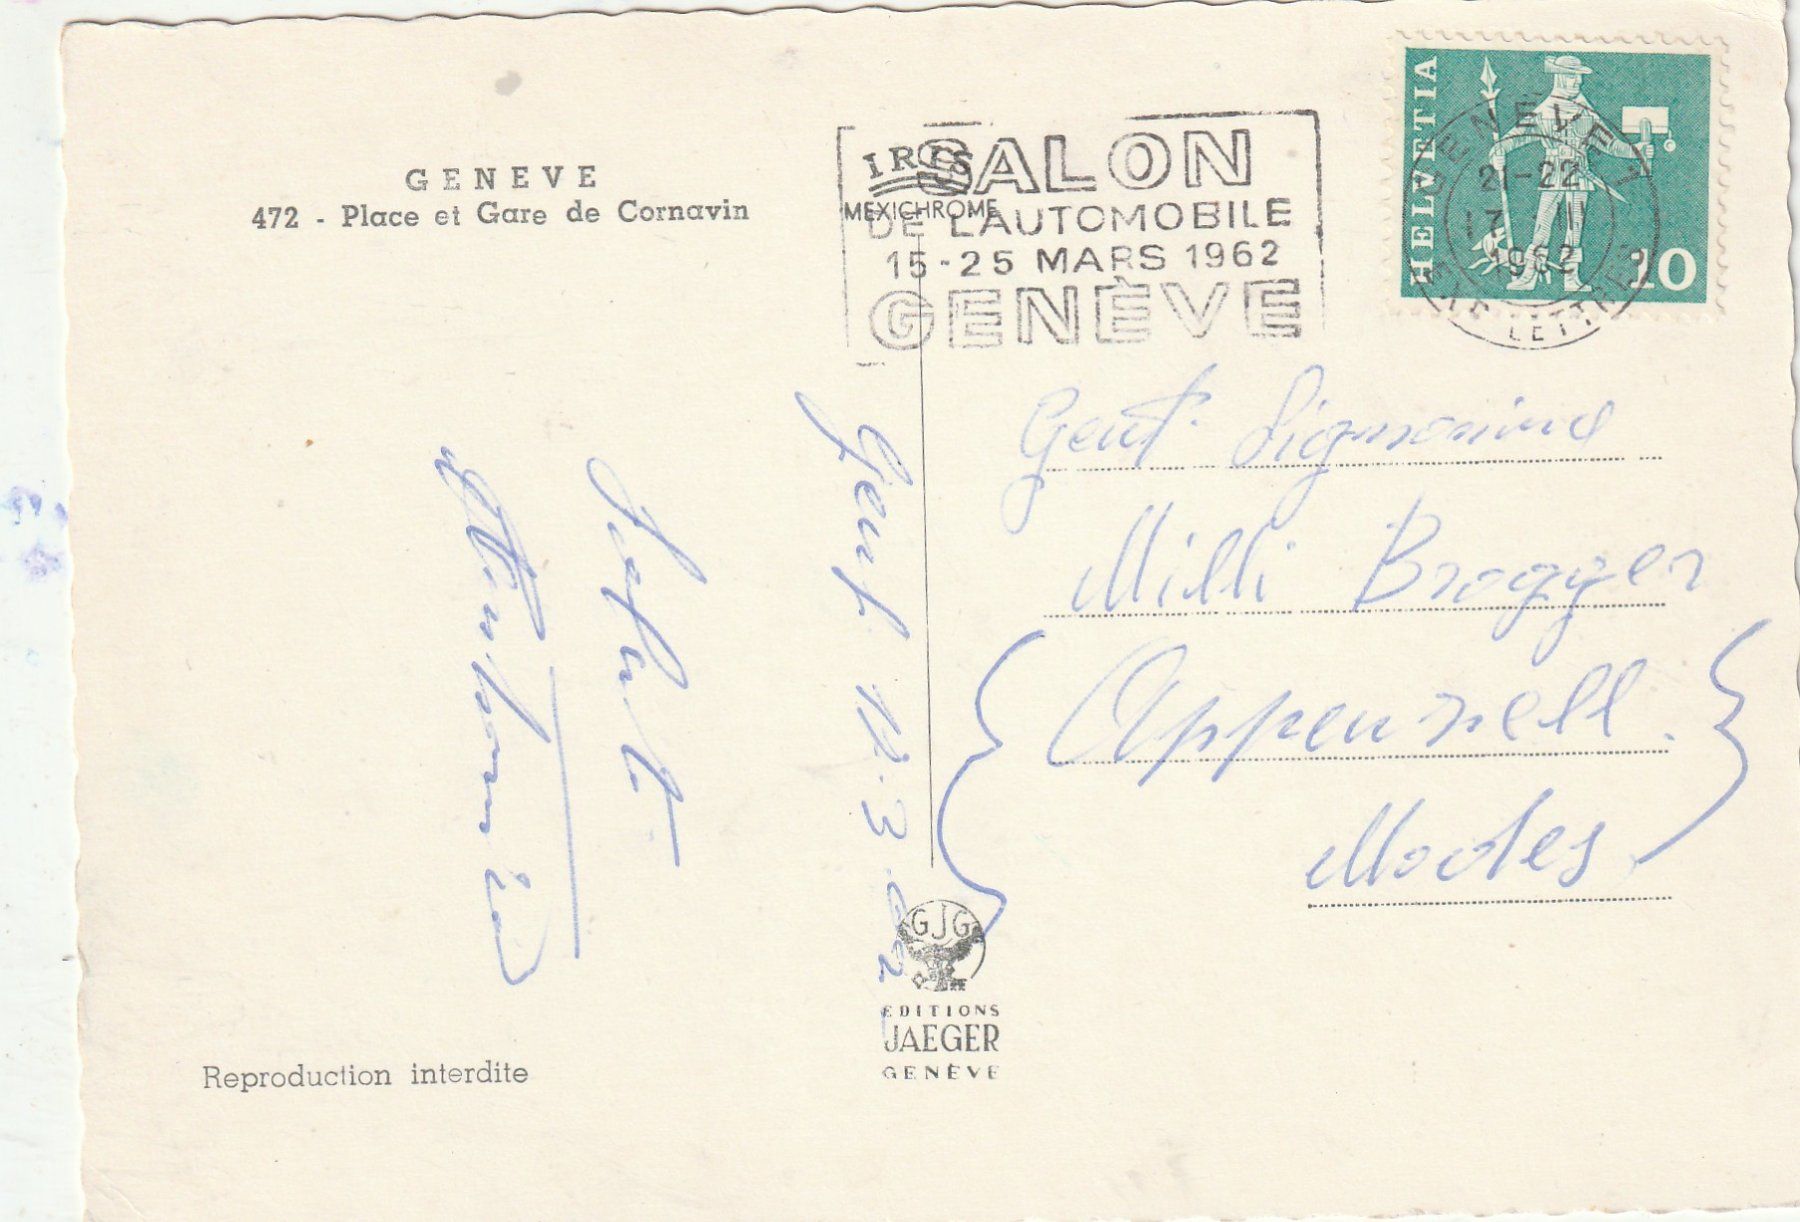 GENEVE
472 - Place et Gare de Cornavin
IRIS
MEXICHROME
SALON
DE L'AUTOMOBILE
15-25 MARS 1962
GENÈVE
HELVETIA
10
GENÈVE 1
21-22
17. III
1962
EXP. LETTRES
Genf. 12.3.62
Gent. Signorina
Milli Brogger
Appenzell.
Modes.
GJG
EDITIONS
JAEGER
GENÈVE
Reproduction interdite